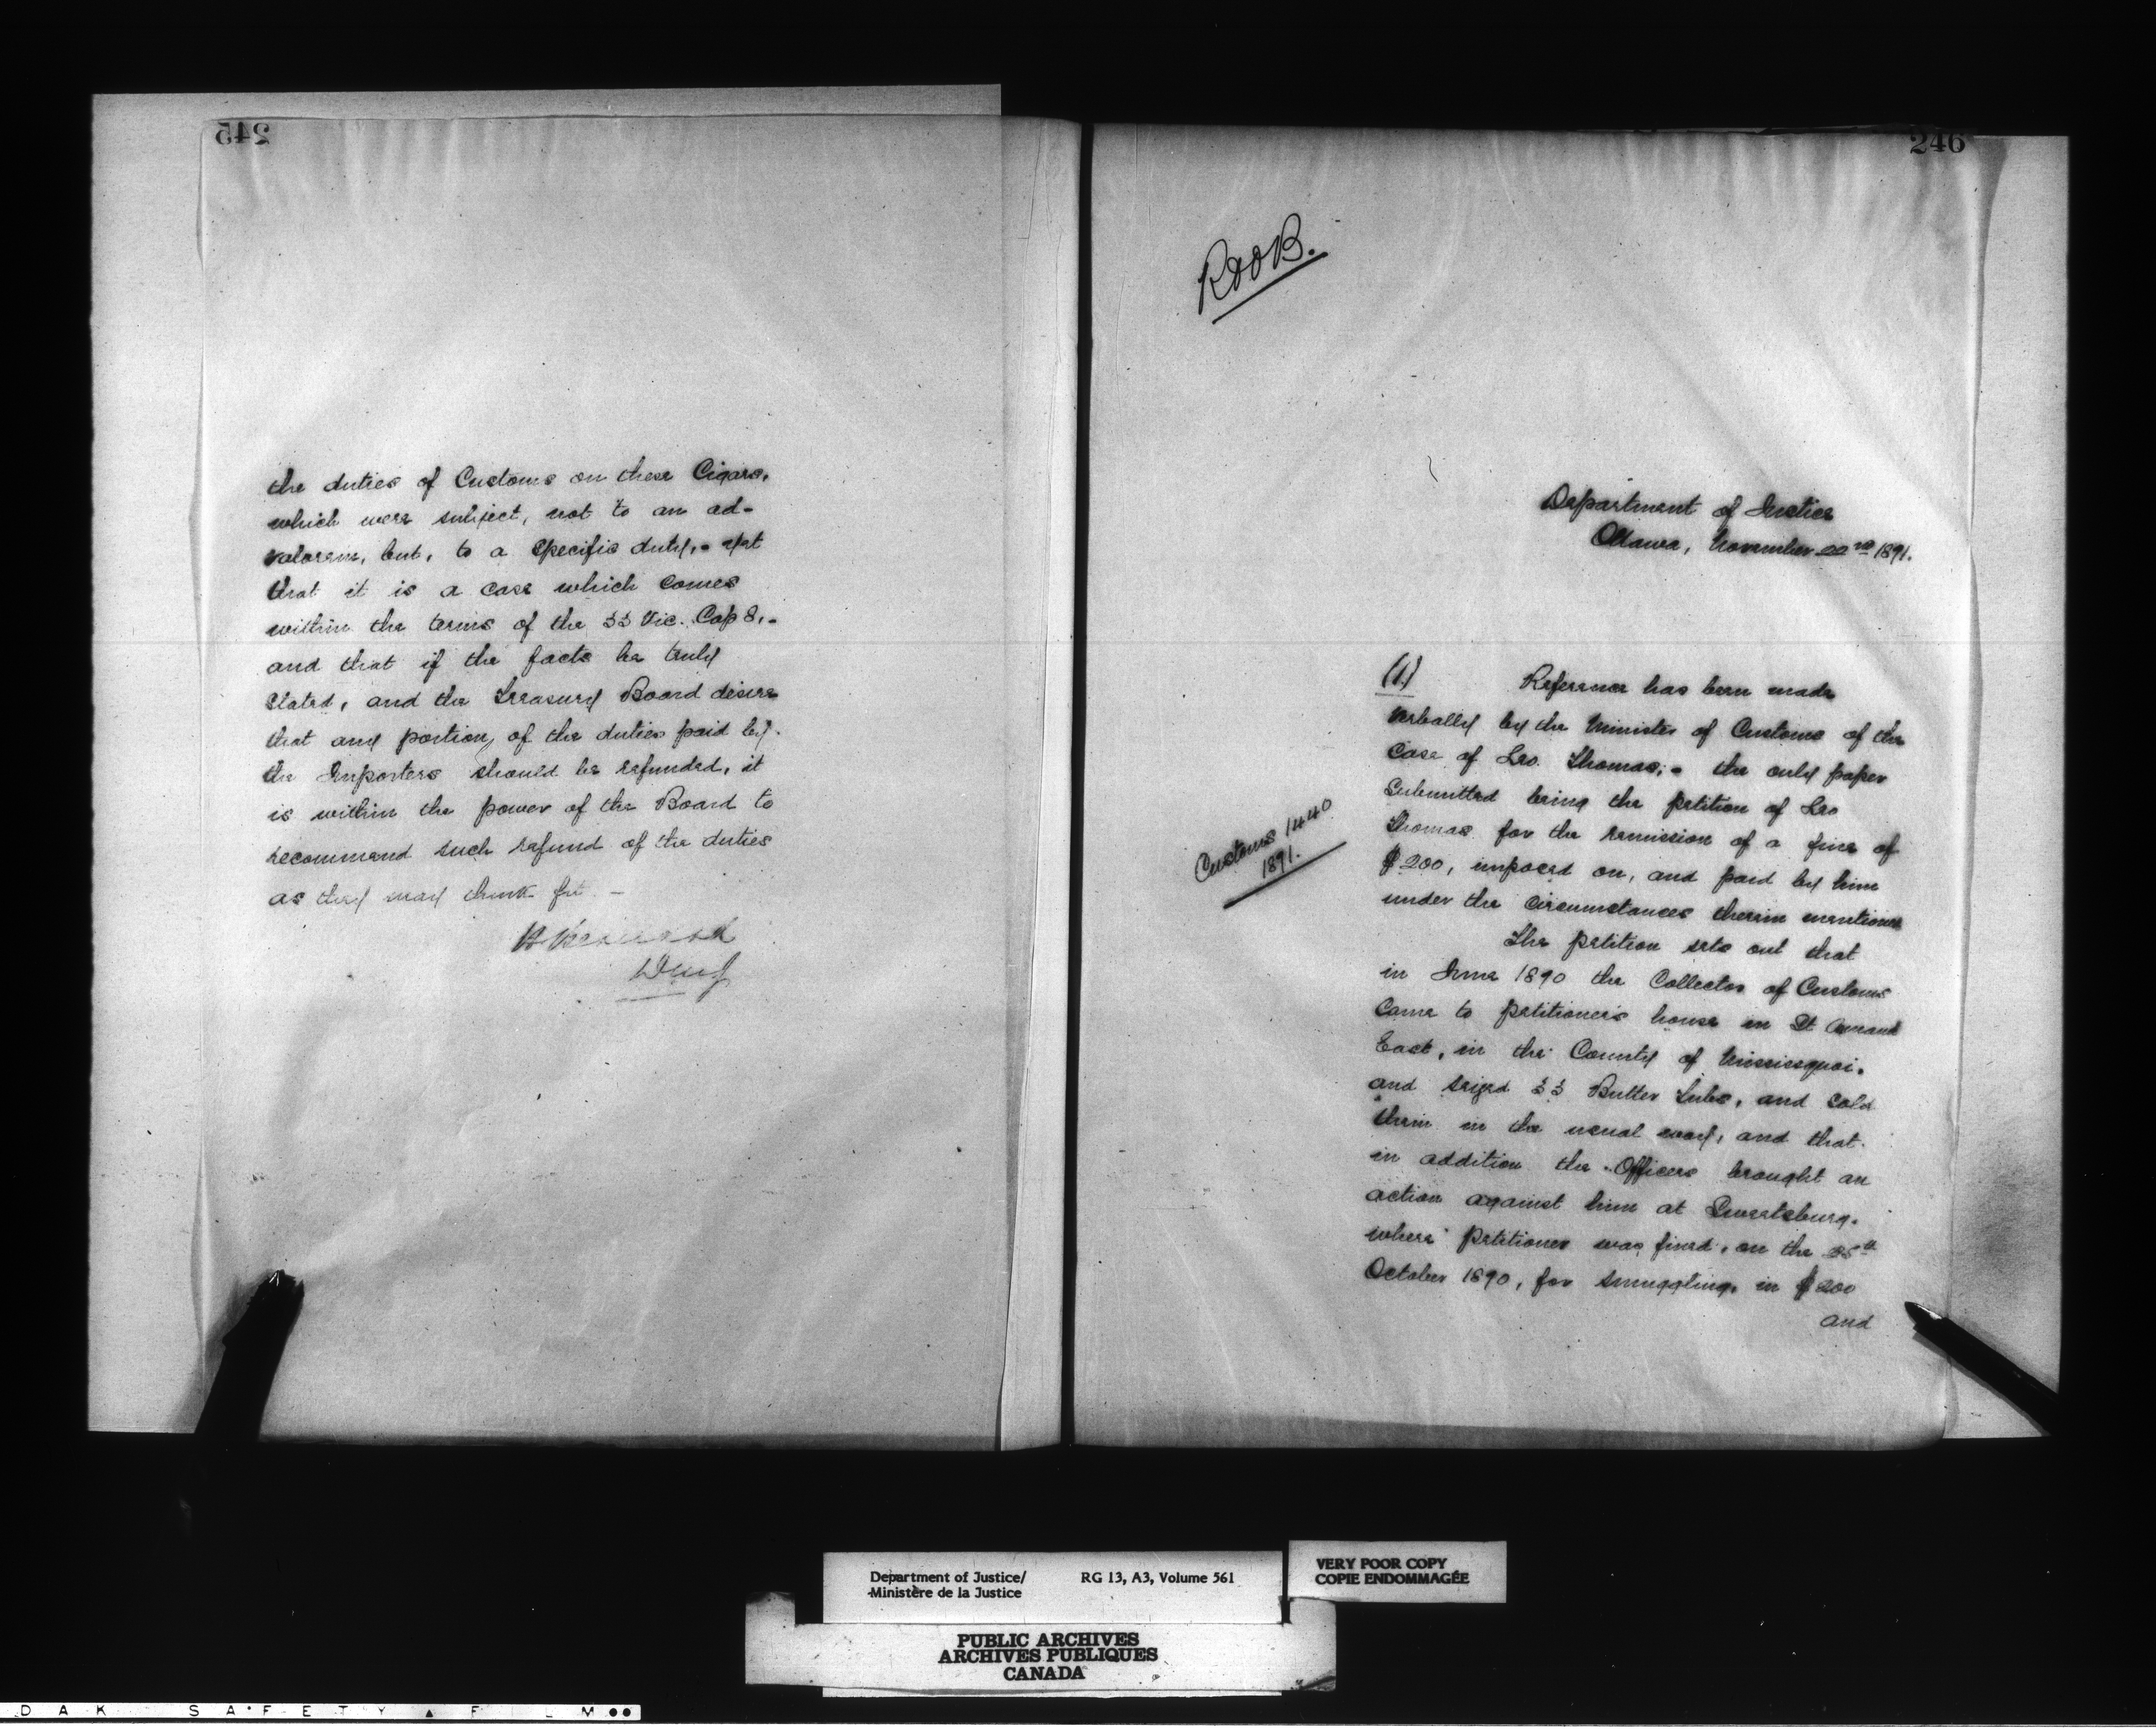 245
the duties of Customs on these Cigars,
which were subject, not to an ad-
valorem, but, to a specific duty,- yet
that it is a case which comes
within the terms of the 53 Vic. Cap 8,-
and that if the facts be truly
stated, and the Treasury Board desire
that any portion, of the duties paid by
the Importers should be refunded, it
is within the power of the Board to
recommend such refund of the duties
as they may think fit -
246
Department of Justice
Ottawa, November 1891.
(1.) Reference has been made
verbally by the Minister of Customs of the
case of Leo. Thomas;- the only paper
submitted being the petition of Leo
Thomas for the remission of a fine of
$200, imposed on, and paid by him
under the circumstances therein mentioned
Customs 1440.
1891.
The petition sets out that
in June 1890 the Collector of Customs
came to petitioner's house in St Armand
East, in the County of Missisquoi.
and seized 33 Butter Tubs, and sold
them in the usual way, and that
in addition the Officers brought an
action against him at Sweetsburg.
where petitioner was fined, on the 25th
October 1890, for smuggling, in $200
and
Department of Justice/
Ministère de la Justice
RG 13, A3, Volume 561
VERY POOR COPY
COPIE ENDOMMAGÉE
PUBLIC ARCHIVES
ARCHIVES PUBLIQUES
CANADA
DAK SAFETY FILM